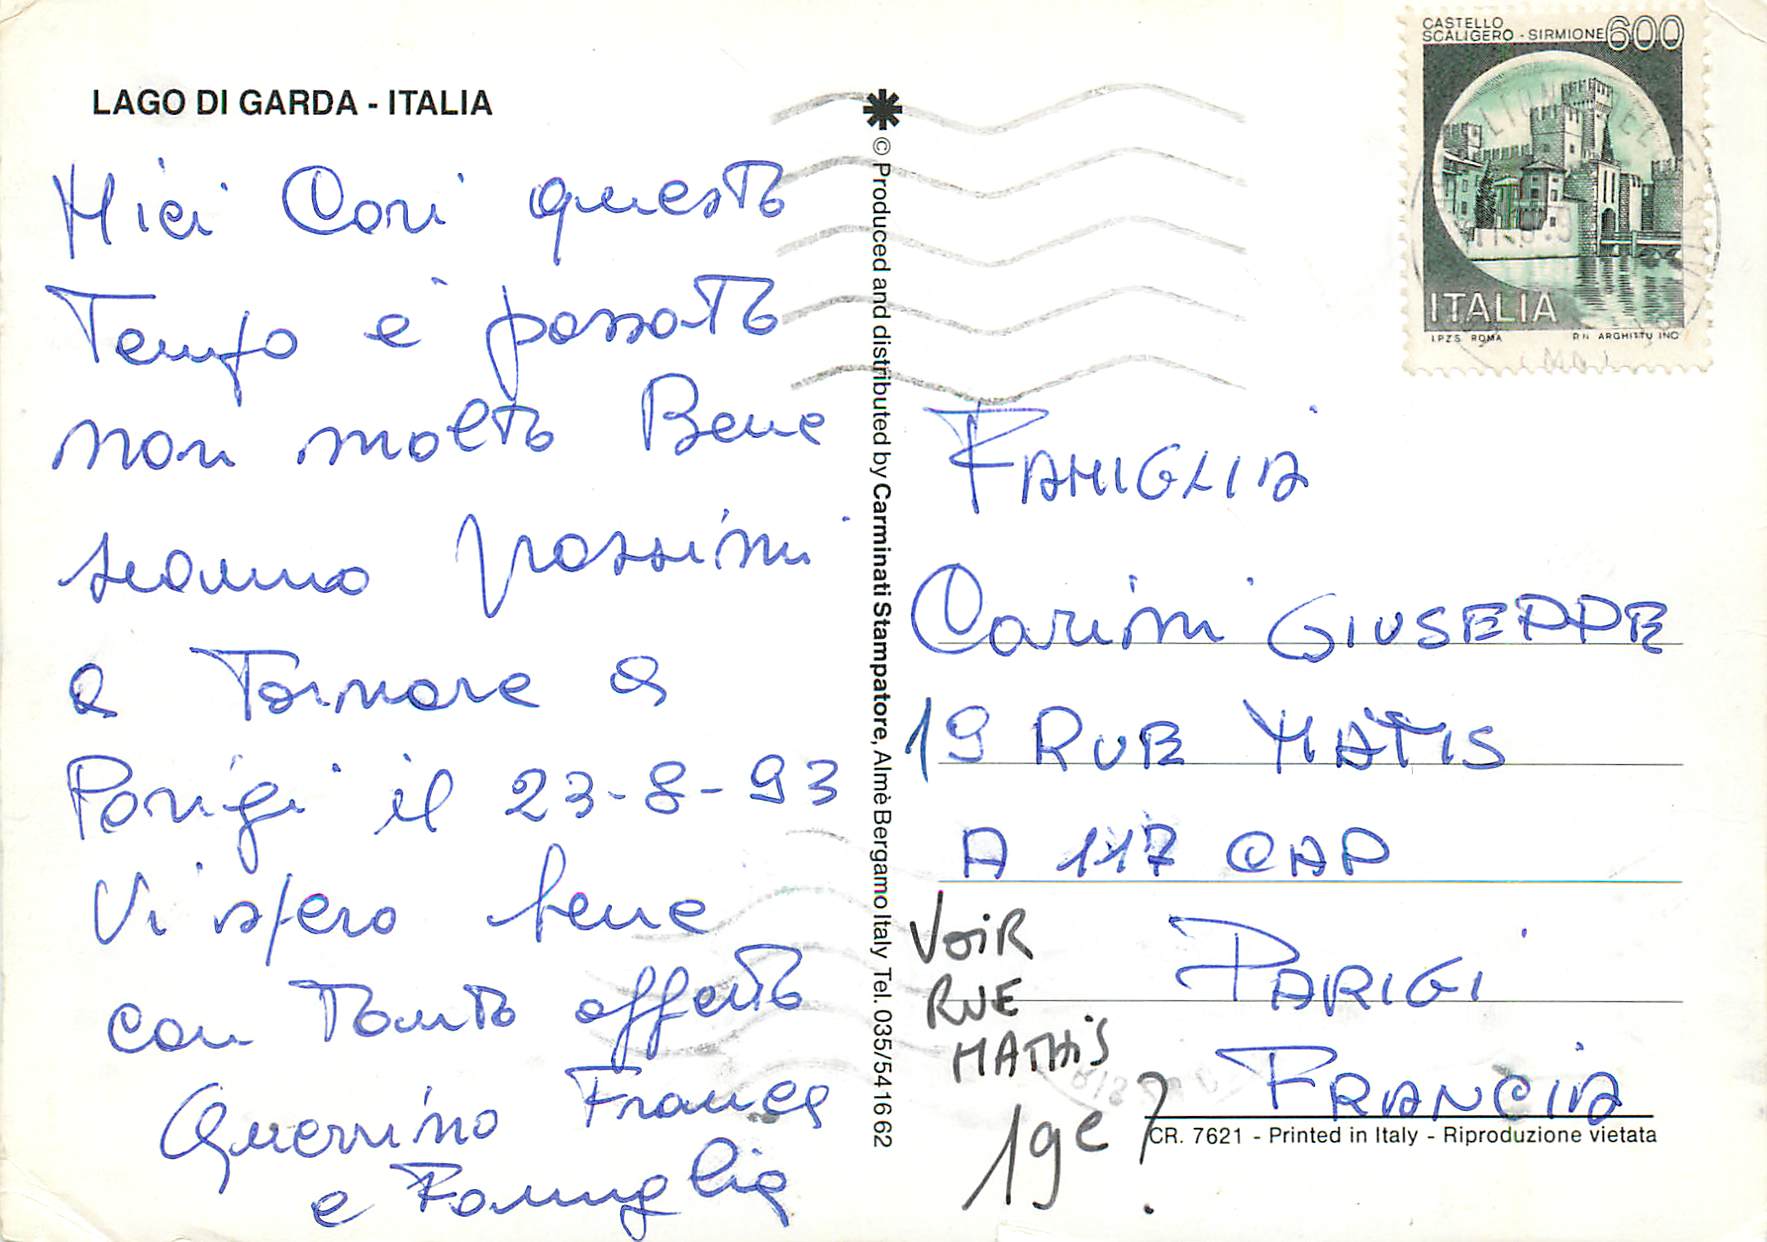 LAGO DI GARDA - ITALIA
Miei Cari questo
Tempo è passato
non molto Bene
siamo prossimi
a Tornare a
Parigi il 23-8-93
Vi spero bene
con Tanto affetto
Guerrino Franca
e Famiglia
© Produced and distributed by Carminati Stampatore, Almè Bergamo Italy Tel. 035/541662
CASTELLO
SCALIGERO - SIRMIONE 600
ITALIA
I.P.Z.S. ROMA
FAMIGLIA
Carini GIUSEPPE
19 RUE MATIS
A 117 CAP
PARIGI
FRANCIA
VOIR
RUE
MATHIS
19e ?
CR. 7621 - Printed in Italy - Riproduzione vietata